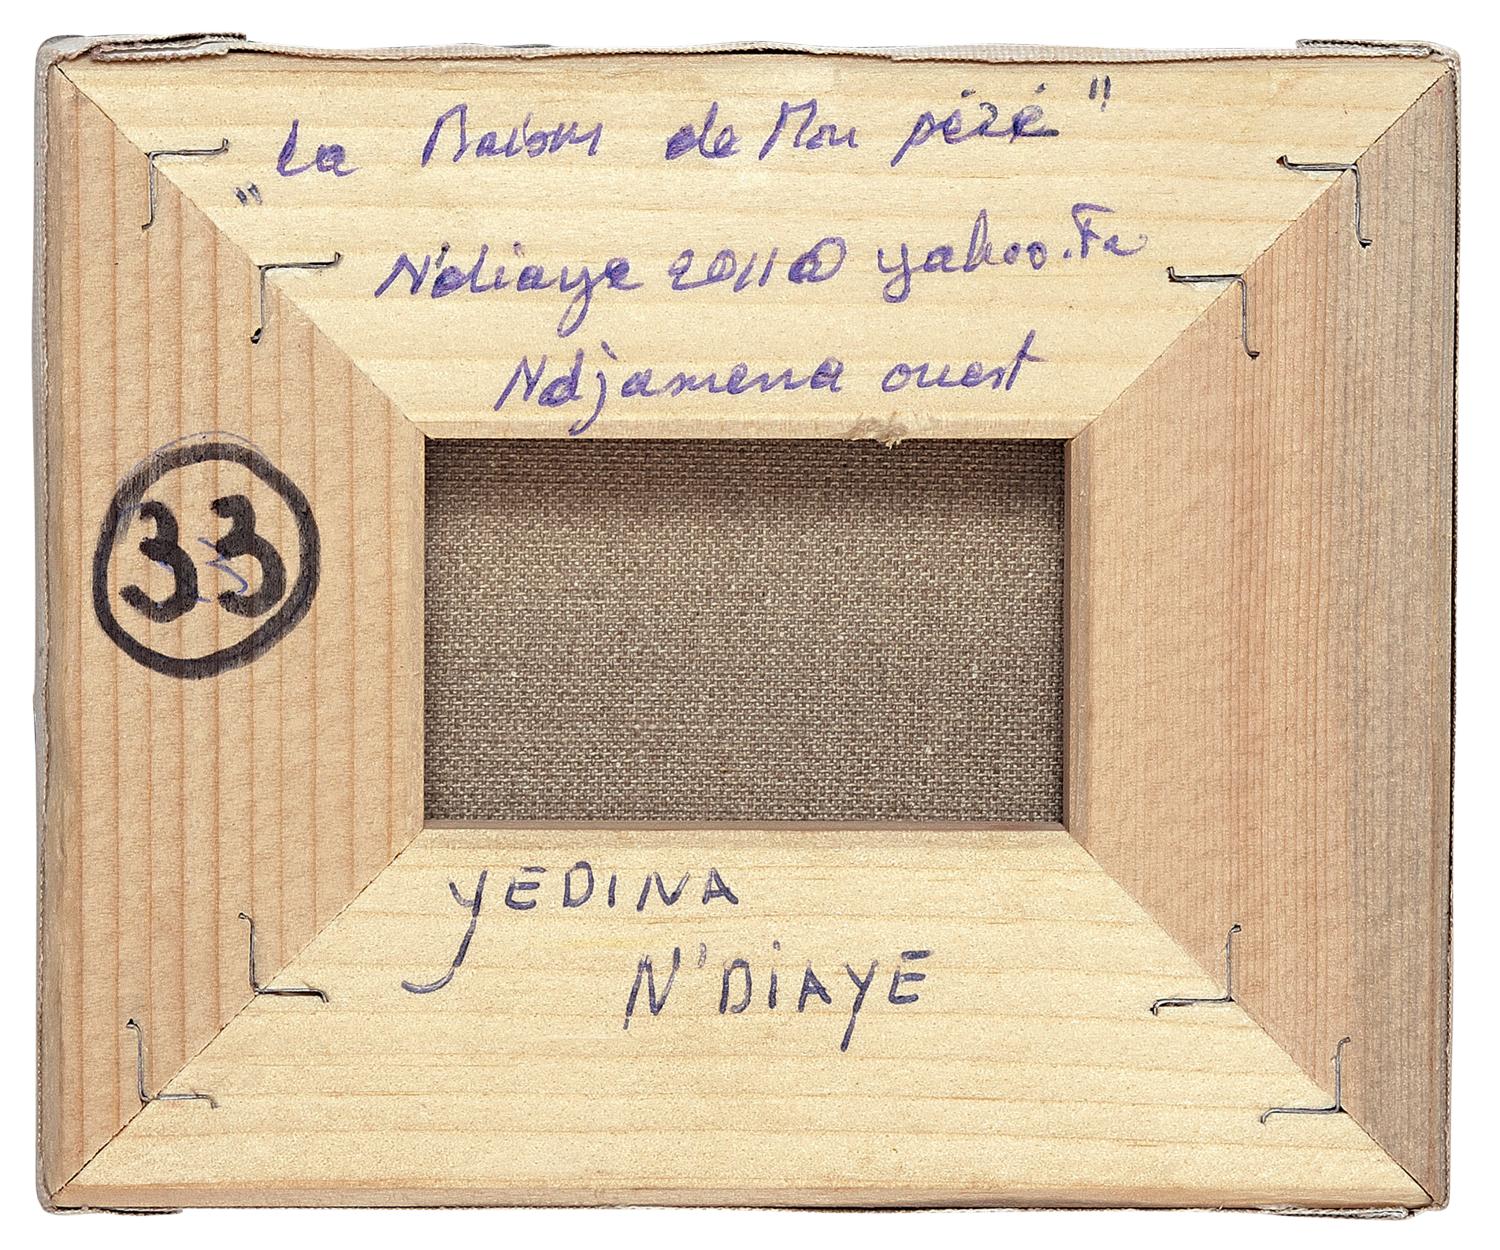 "La Maison de Mon péré"
N'diaye 2011@yahoo.Fr
Ndjamena ouest
33
YEDINA
N'DIAYE